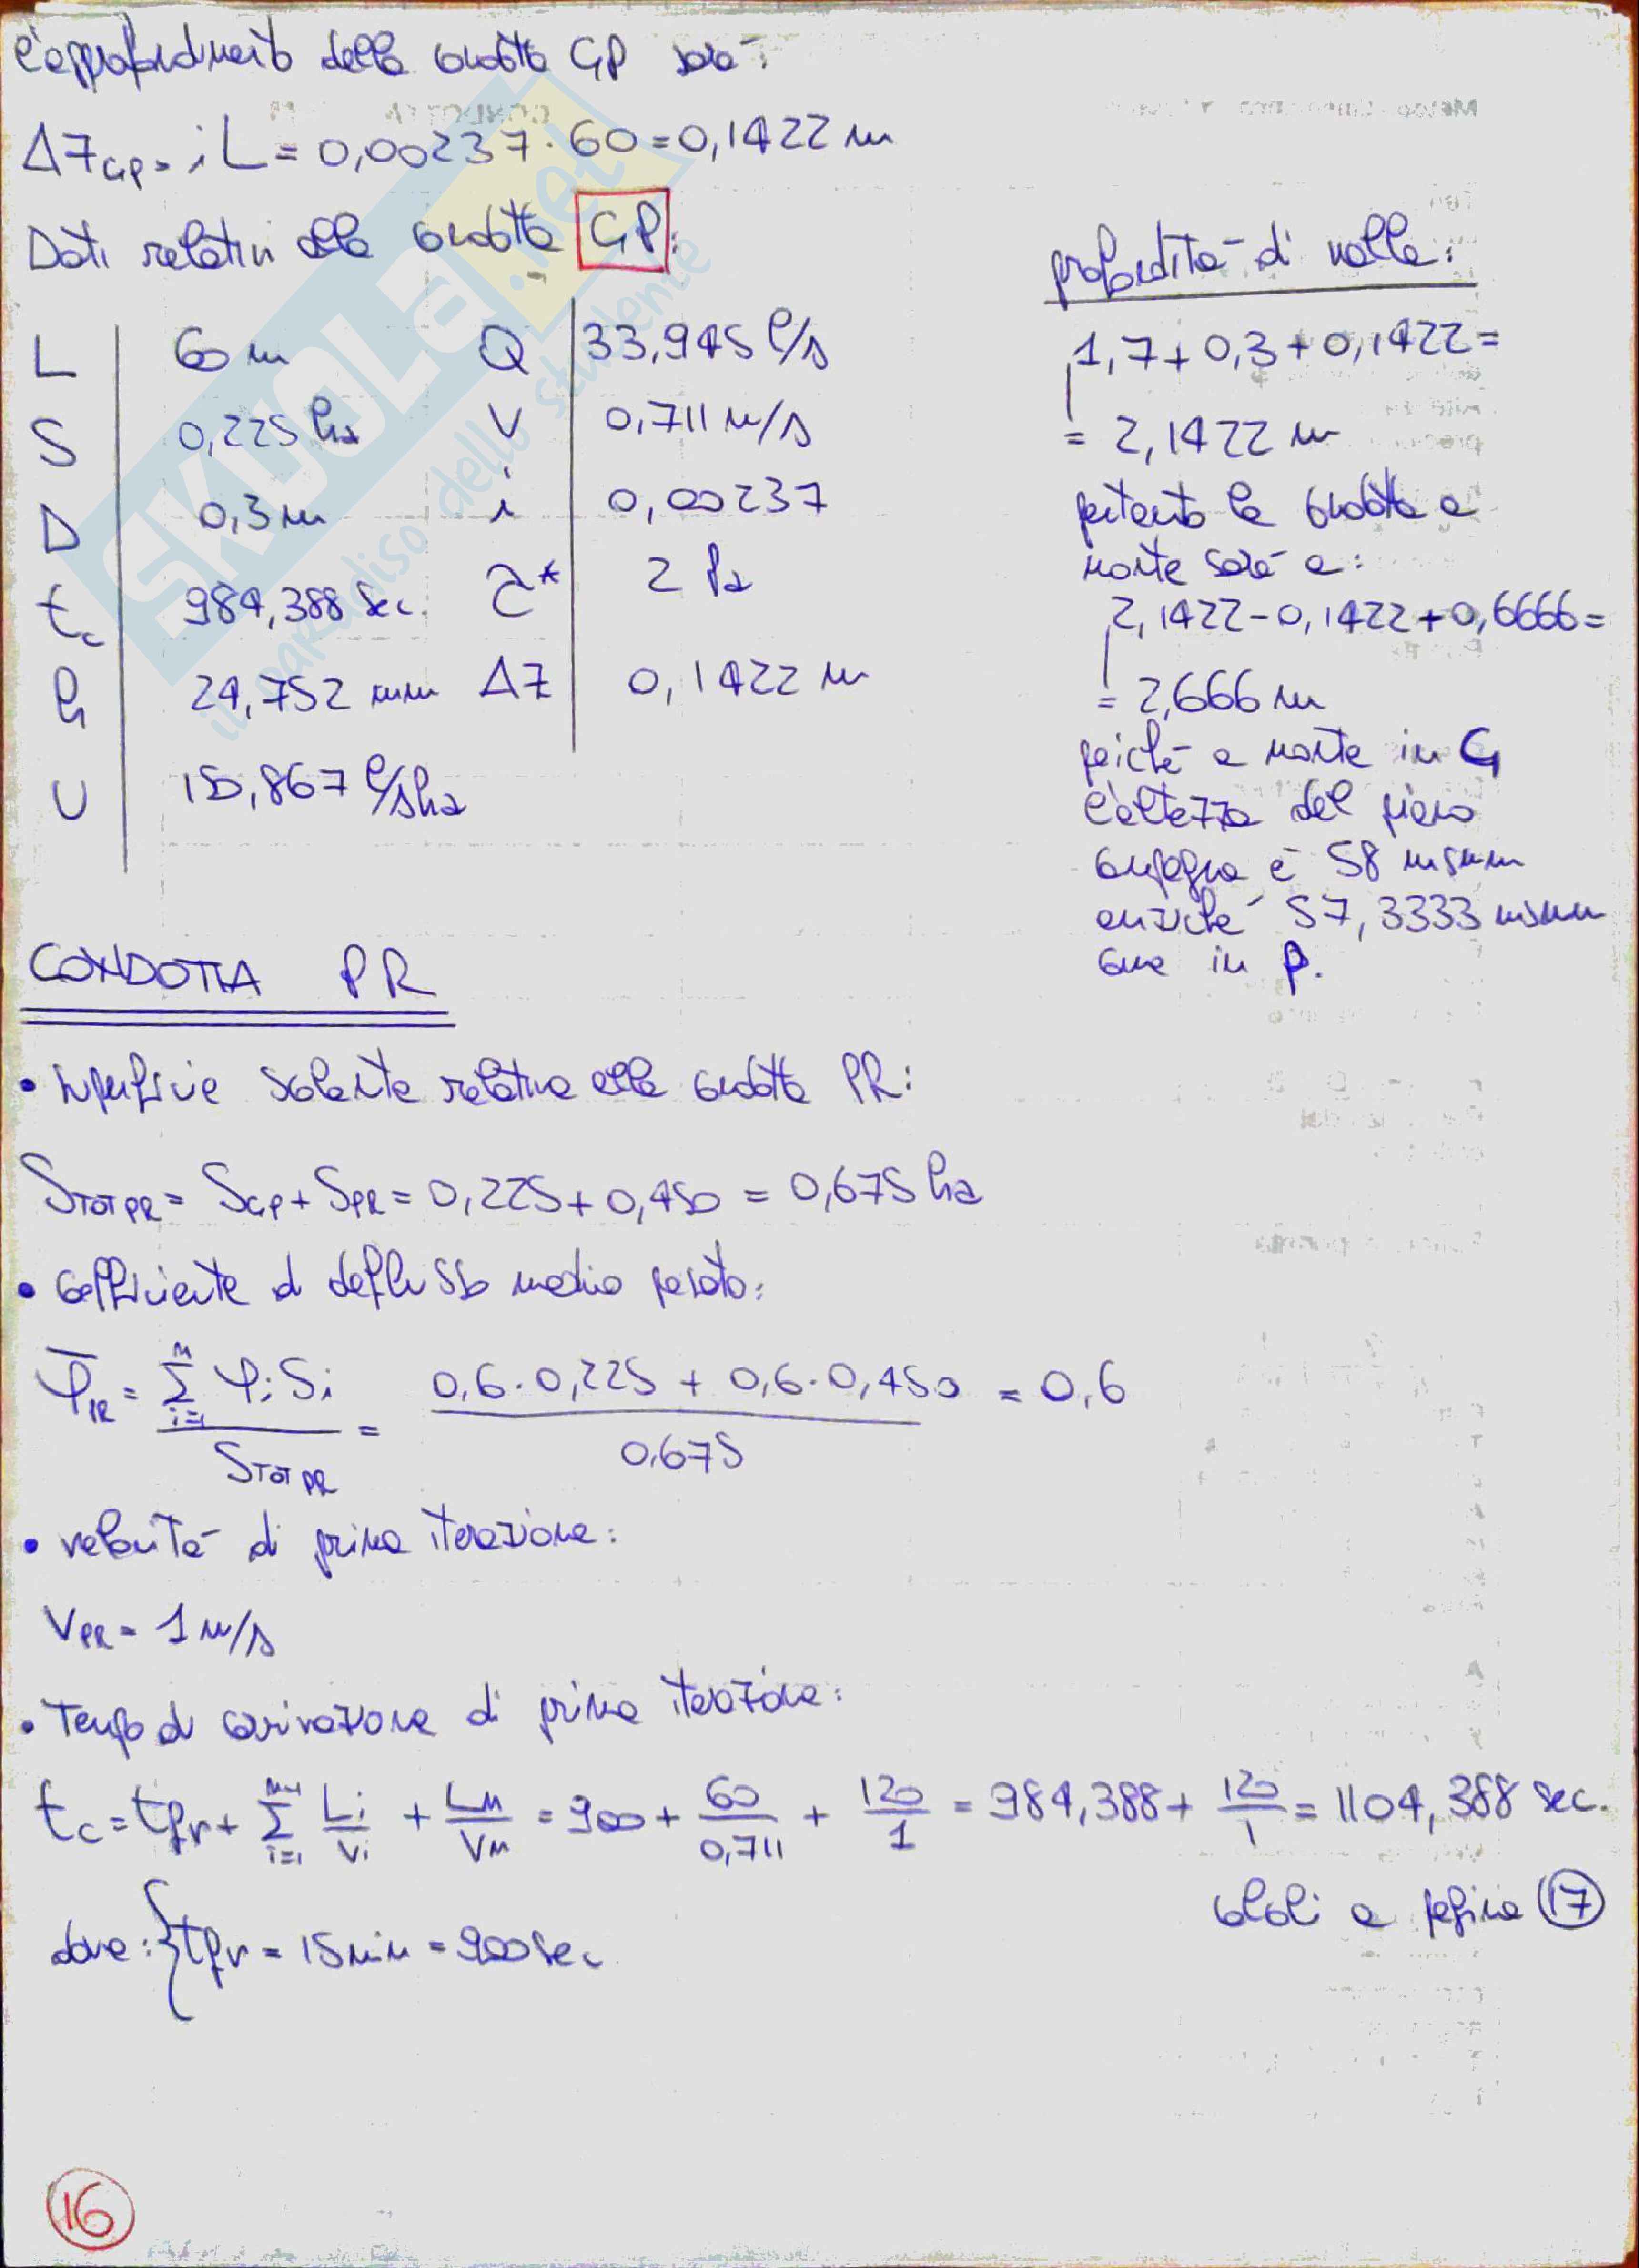 l'approfondimento della condotta GP sarà:
ΔZGP = i L = 0,00237 · 60 = 0,1422 m
Dati relativi alla condotta GP:
L 60 m Q 33,945 l/s
S 0,225 ha V 0,711 m/s
D 0,3 m i 0,00237
tc 984,388 sec. τ* 2 Pa
h 24,752 mm ΔZ 0,1422 m
U 150,867 l/s ha
profondità di valle:
1,7 + 0,3 + 0,1422 =
= 2,1422 m
pertanto la condotta a
monte sarà a:
2,1422 - 0,1422 + 0,6666 =
= 2,666 m
poichè a monte in G
l'altezza del piano
campagna è 58 msmm
anziché 57,3333 msmm
come in P.
CONDOTTA PR
• superficie scolante relativa alla condotta PR:
STOT PR = SGP + SPR = 0,225 + 0,450 = 0,675 ha
• coefficiente di deflusso medio pesato:
φ̅PR = Σ i=1 n φi Si / STOT PR = 0,6 · 0,225 + 0,6 · 0,450 / 0,675 = 0,6
• velocità di prima iterazione:
VPR = 1 m/s
• Tempo di corrivazione di prima iterazione:
tc = tpr + Σ i=1 n-1 Li/Vi + Ln/Vn = 900 + 60/0,711 + 120/1 = 984,388 + 120/1 = 1104,388 sec.
dove: { tpr = 15 min = 900 sec
calcoli a pagina 17
16
SKUOLA.net
il paradiso dello studente